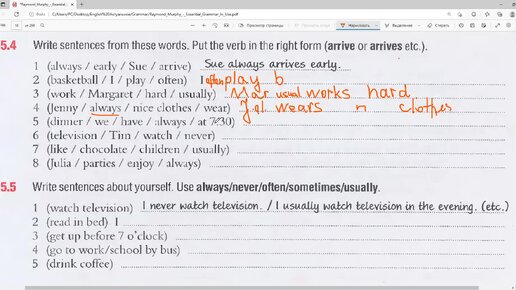 *Raymond_Murphy_-_Essential_Grammar_In_Use.pdf
C:/Users/PC/Desktop/English%20B/Актуальное/Grammar/Raymond_Murphy_-_Essential_Grammar_In_Use.pdf
5.4 Write sentences from these words. Put the verb in the right form (arrive or arrives etc.).
1 (always / early / Sue / arrive) Sue always arrives early.
2 (basketball / I / play / often) I often play b
3 (work / Margaret / hard / usually) Mar usual works hard
4 (Jenny / always / nice clothes / wear) J.al wears n clothes
5 (dinner / we / have / always / at 7.30)
6 (television / Tim / watch / never)
7 (like / chocolate / children / usually)
8 (Julia / parties / enjoy / always)
5.5 Write sentences about yourself. Use always/never/often/sometimes/usually.
1 (watch television) I never watch television. / I usually watch television in the evening. (etc.)
2 (read in bed) I
3 (get up before 7 o'clock)
4 (go to work/school by bus)
5 (drink coffee)